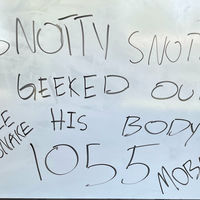 SNOTTY SNOT
GEEKED OU
HIS BODY
SNAKE
1055 MOB